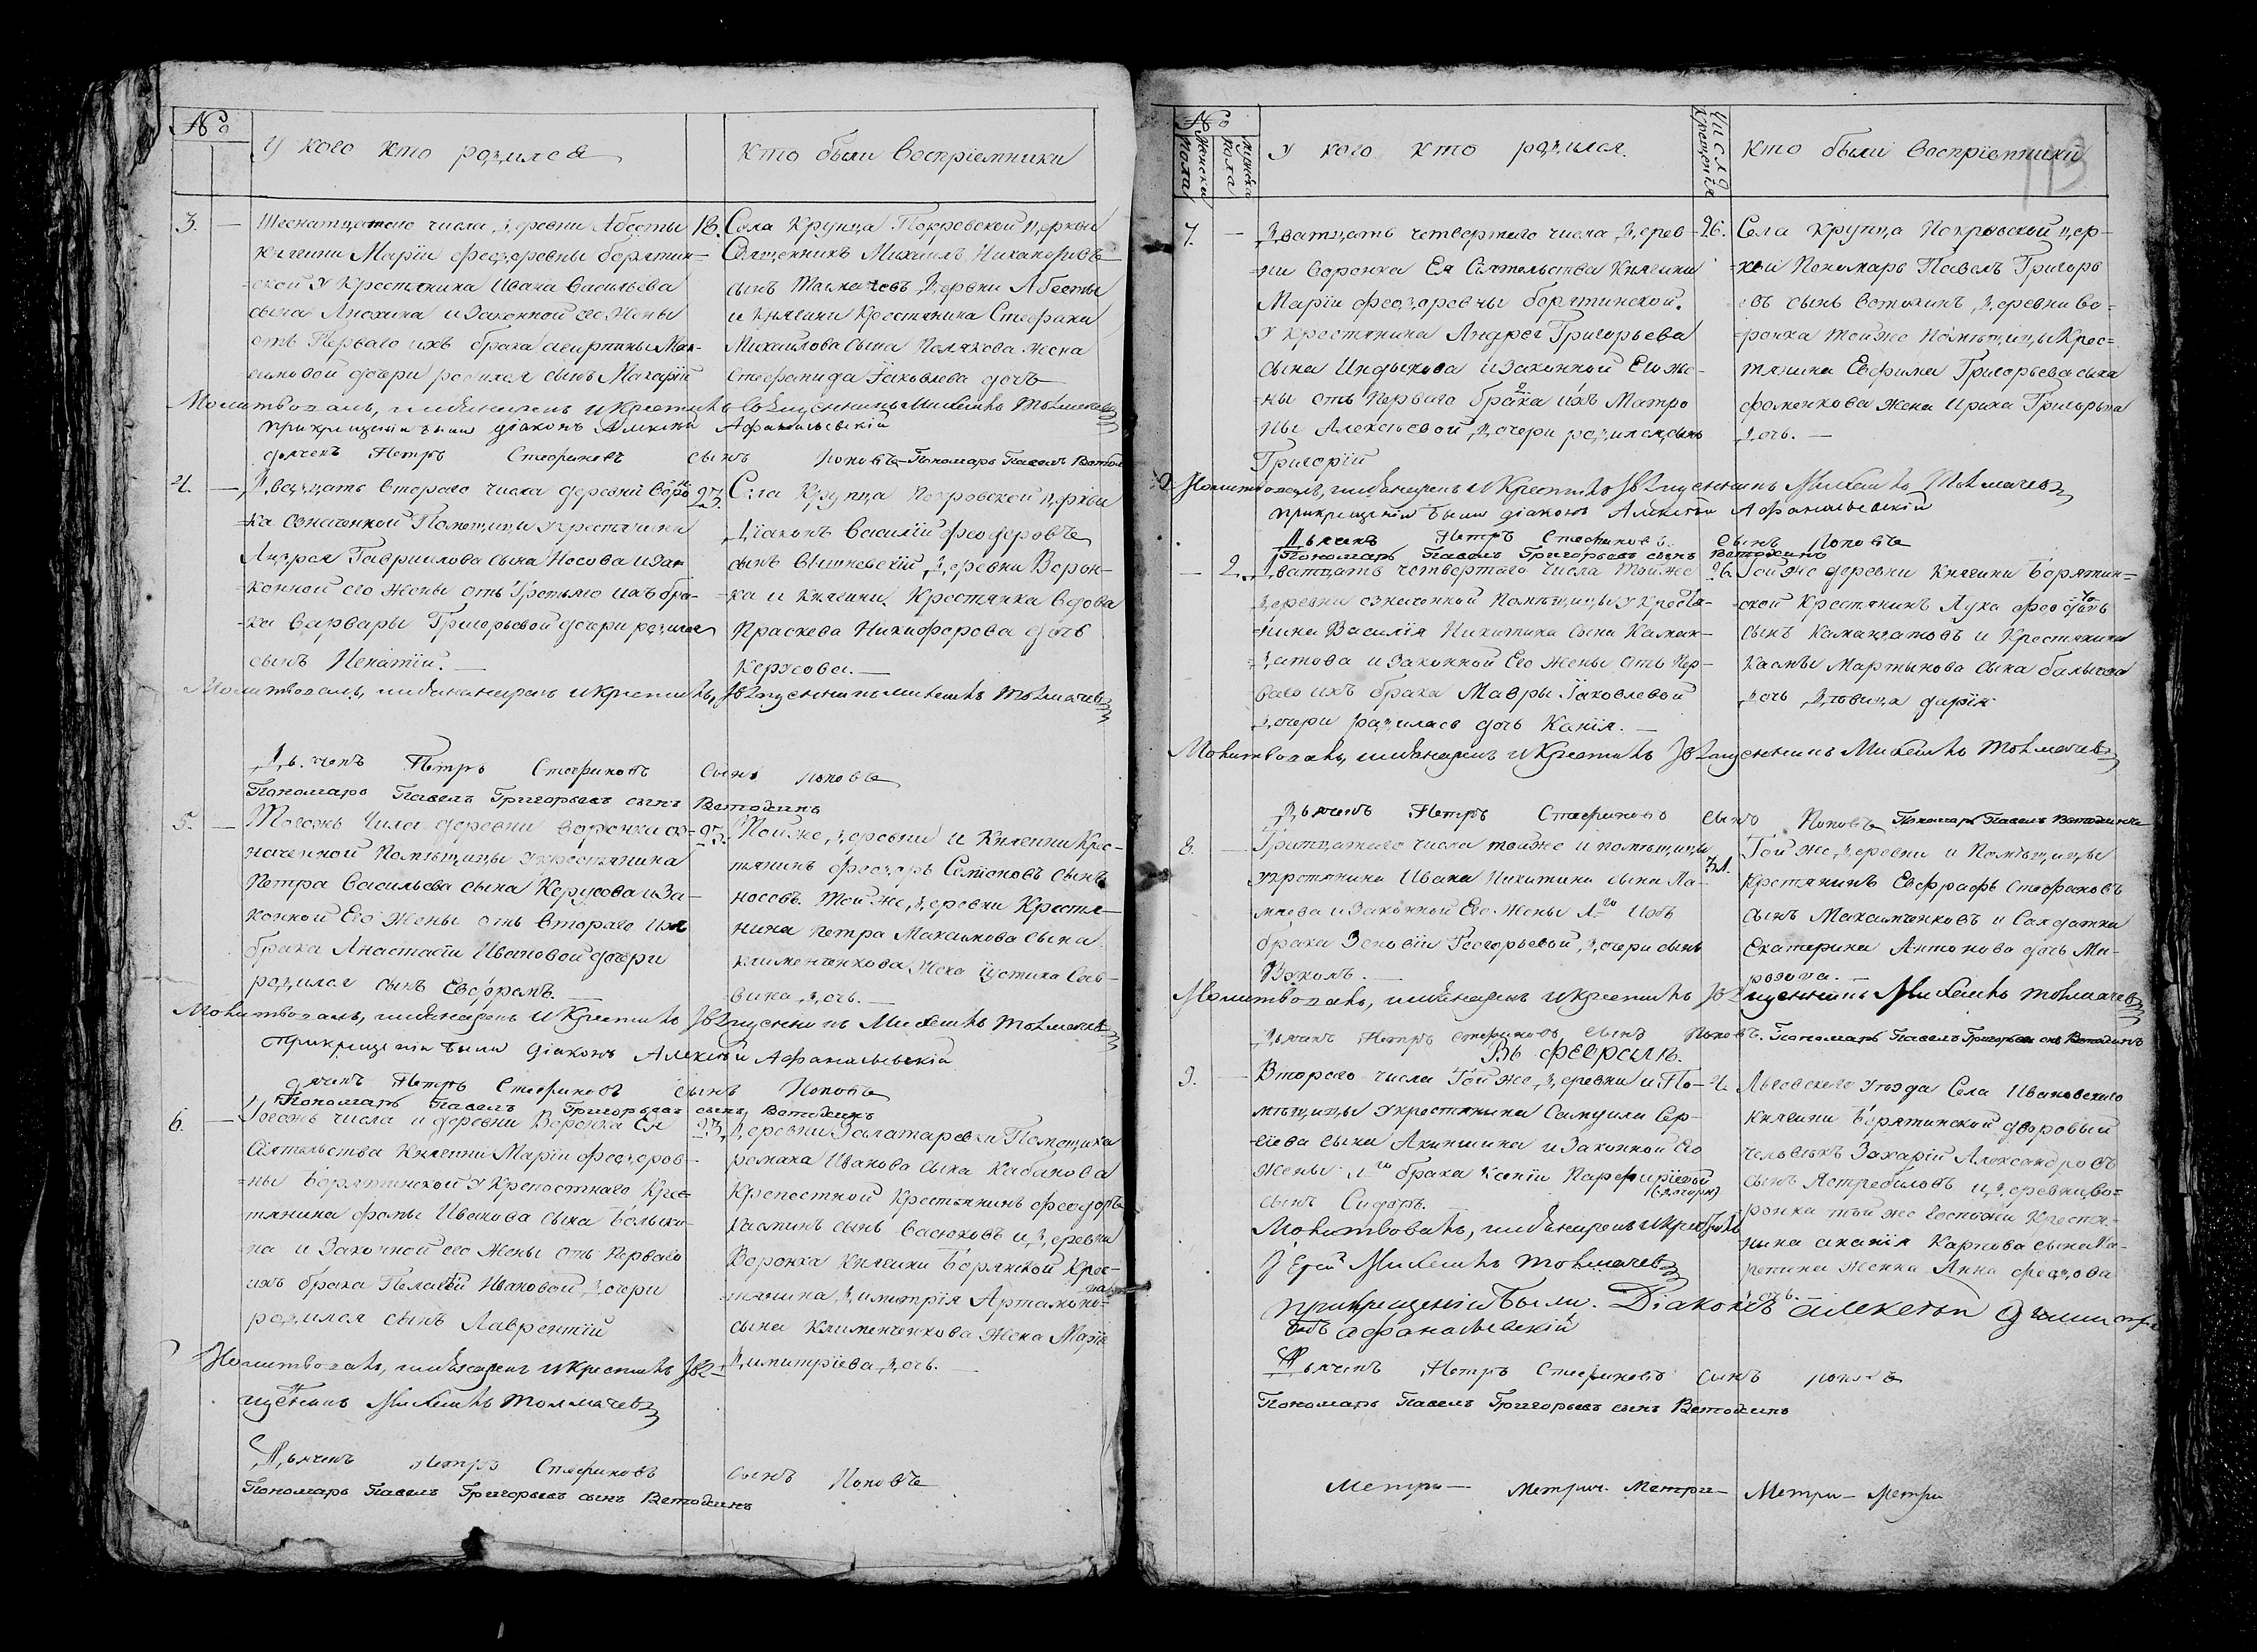 №
У кого кто родился
Кто были восприемники
3. — Шеснатцатаго числа деревни Абесты
княгини Маріи Феодоровны борятин-
ской у Крестянина Ивана Васильева
сына Анохина и Законной его Жены
отъ Перваго ихъ брака
дочери родился сынъ Макарій
18. Села Крупца Покровской церкви
Священникъ Михаилъ Никаноровъ
сынъ Толмачевъ Деревни Абесты
и Княгини Крестянина Стефана
Михаилова сына Полякова жена
Стефанида Іаковлева дочь
Молитвовалъ, имя нарекъ и крестилъ Священникъ Михаилъ Толмачевъ
при крещеніи были діаконъ Алексѣй Афанасьевскій
дьячекъ Петръ Стефановъ сынъ Поповъ Пономарь Павелъ
4. — Двадцать втораго числа деревни Ворон-
ка означенной Помещицы у крестянина
Андрея Гавриилова сына Носова и Зак-
конной его Жены отъ Третьяго ихъ бра-
ка Варвары Григорьевой дочери родился
сынъ Игнатій. —
23. Села Крупца Покровской церкви
Діаконъ Василій Феодоровъ
сынъ Вишневскій, Деревни Ворон-
ка и Княгини Крестянка вдова
Праскева Никифорова дочь
—
Молитвовалъ, имя нарекъ и крестилъ, Священникъ Михаилъ Толмачевъ
Дьячекъ Петръ Стефановъ сынъ Поповъ
Пономарь Павелъ Григорьевъ сынъ Ветохинъ
5. — Тогожъ Числа деревни воронки оз-
наченной Помѣщицы у крестянина
Петра Васильева сына и За-
конной Его Жены отъ Втораго ихъ
брака Анастасіи Ивановой дочери
родился сынъ Евфремъ. —
23. Той же деревни и Княгини Крес-
тянинъ Феодоръ Семіоновъ сынъ
Носовъ. Той же Деревни Крестя-
нина Петра Максимова сына
Клименченкова Жена Іустина Сав-
вина дочь. —
Молитвовалъ, имя нарекъ и Крестилъ Священникъ Михаилъ Толмачевъ
при крещеніи были діаконъ Алексѣй Афанасьевскій
дьячекъ Петръ Стефановъ сынъ Поповъ
Пономарь Павелъ Григорьевъ сынъ Ветохинъ
6. — Тогожъ числа и деревни Воронка Ея
Сіятельства Княгини Маріи Феодоров-
ны Борятинской у Крепостнаго Крес-
тянина Фомы Иванова сына
и Законной его Жены отъ Перваго
ихъ брака Пелагіи Ивановой дочери
родился сынъ Лаврентій
23. Деревни Залатаревки Помещика
романа Иванова сына Кабанова
Крепостной Крестянинъ Феодоръ
сынъ Васюковъ и Деревни
Воронка Княгини Борянской Крес-
тянина Димитрія Артамоно-
сына Клименченкова Жена Марія
Димитріева дочь. —
Молитвовалъ, имя нарекъ и крестилъ Свя-
щенникъ Михаилъ Толмачевъ
Дьячекъ Петръ Стефановъ сынъ Поповъ
Пономарь Павелъ Григорьевъ сынъ Ветохинъ
№
Женска пола
Мужска пола
У кого кто родился.
Число крещенія
Кто были восприемники
113
7. — Дватцать четвертаго числа Дерев-
ни Воронка Ея Сіятельства Княгини
Маріи Феодоровны борятинской.
У крестянина Андрея Григорьева
сына Индыкова и Законной Его же-
ны отъ Перваго брака ихъ Матро
ны Алексѣевой Дочери родился, сынъ
Григорій
26. Села Крупца Покровской цер-
кви Пономарь Павелъ Григорь
евъ сынъ Ветохинъ, Деревни Во-
ронка той же Помѣщицы Крес-
тянина Евфима Григорьева сына
Фоменкова Жена Ирина Григорьева
Дочь. —
Молитвовалъ, имя нарекъ и Крестилъ Священникъ Михаилъ Толмачевъ
при крещеніи были діаконъ Алексѣй Афанасьевскій
Дьячекъ Петръ Стефановъ сынъ Поповъ
Пономарь Павелъ Григорьевъ сынъ Ветохинъ
— 2. Дватцать четвертаго Числа Той же
Деревни означенной Помѣщицы у Крестя-
нина Василія Никитина сына Каман-
датова и Законной Его Жены Отъ Пер-
ваго ихъ брака Мавры Іаковлевой
Дочери родилась дочь Ксенія. —
26. Той же деревни Княгини Борятин-
ской Крестянинъ Лука
сынъ Камандатовъ и Крестянина
Мартынова сына
Дочь Дѣвица дарія
Молитвовалъ, имя нарекъ и Крестилъ Священникъ Михаилъ Толмачевъ
Дьячекъ Петръ Стефановъ сынъ Поповъ Пономарь Павелъ Ветохинъ
8. — Тритцатаго числа той же и помѣщицы
у крестянина Ивана Никитина сына
и Законной Его Жены 1го Ихъ
брака Зеновіи Георгіевой, дочери сынъ
31. Той же Деревни и Помѣщицы
Крестянинъ Евфрафъ Стефановъ
сынъ Максимченковъ и Салдатка
Екатерина Антонова дочь Мо-
розова. —
Молитвовалъ, имя нарекъ и крестилъ Священникъ Михаилъ Толмачевъ
Дьячекъ Петръ Стефановъ сынъ Поповъ. Пономарь Павелъ Григорьевъ снъ Ветохинъ
Въ Февралѣ.
9. — Втораго числа Той же Деревни и По-
мѣщицы у крестянина Самуила Сер-
гіева сына Акиншина и Законной Его
Жены 1го брака Ксеніи Парфиріевой
(дочери)
сынъ Сидоръ.
4. Льговскаго Уѣзда Села Ивановскаго
Княгини Борятинской дворовый
человѣкъ Захарій Александровъ
сынъ Ястребиловъ и Деревни во-
ронка той же Госпожи Крестя-
нина Карпова сына
Женка Анна
дочь. —
Молитвовалъ, имя нарекъ и крестилъ
Іерей Михаилъ Толмачевъ
при крещеніи были. Діаконъ алексѣй
афанасьевскій
Дьячекъ Петръ Стефановъ сынъ Поповъ
Пономарь Павелъ Григорьевъ сынъ Ветохинъ
Метри — Метрич. Метри — Метри — Метри